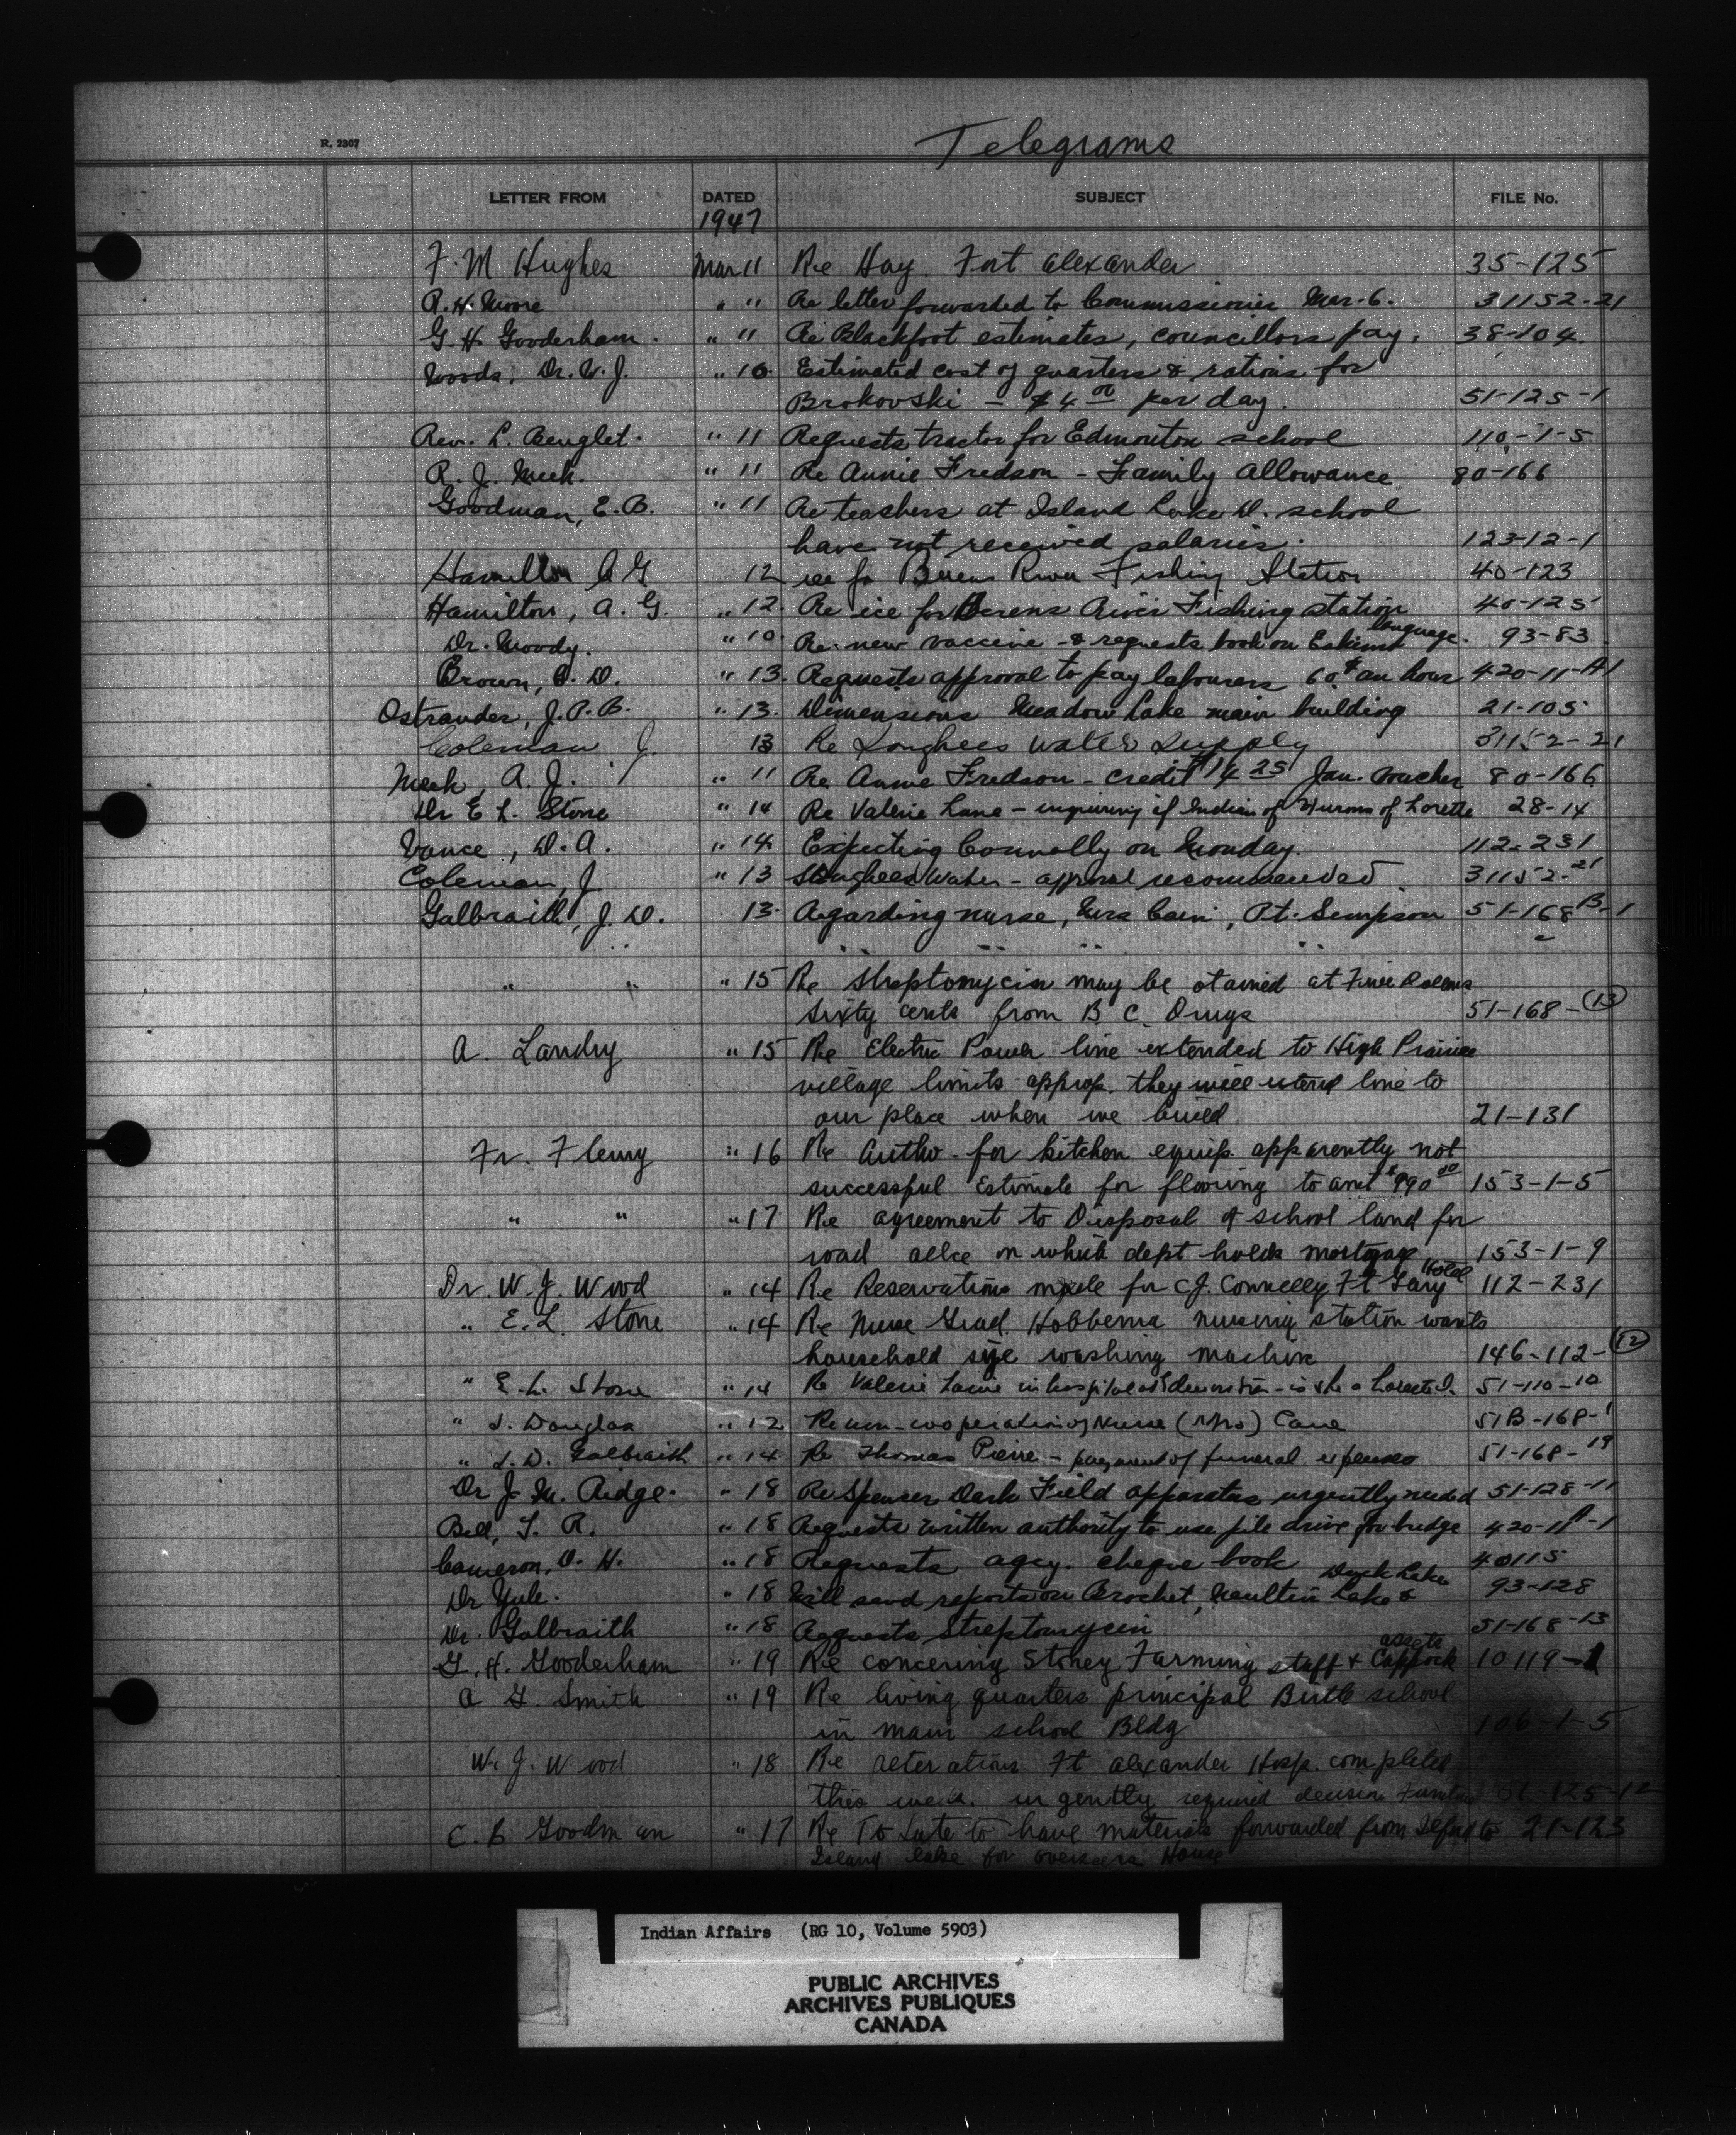 R. 2307
Telegrams
LETTER FROM DATED SUBJECT FILE No.
1947
F. M Hughes Mar 11 Re Hay Fort Alexander 35-125
R. H. Moore " 11 Re letter forwarded to Commissioner Mar. 6. 31152-21
G. H Gooderham. " 11 Re Blackfoot estimates, councillors pay. 38-104.
Woods, Dr. W. J. " 10 Estimated cost of quarters & rations for
Brokovski - $4 00 per day. 51-125-1
Rev. L. " 11 Requests tractor for Edmonton school 110-1-5
R. J. Meek. " 11 Re Annie Fredson - Family Allowance 80-166
Goodman, E. B. " 11 Re teachers at Island Lake D. school
have not received salaries. 123-12-1
Hamilton A G 12 ice for Berens River Fishing Station 40-123
Hamilton, A. G. " 12. Re ice for Berens River Fishing station 40-125
language.
Dr. Moody. " 10. Re new vaccine - & requests book on Eskimo 93-83
Brown, " 13. Requests approval to pay labourers 60¢ an hour 420-11-A1
Ostrander, J. P. B. " 13. Dimensions Meadow Lake main building 21-105
Coleman J. 13 Re Longhees Water Supply 31152-21
Meek, R. J. " 11 Re Annie Fredson - credit $14 25 Jan. voucher 80-166
Dr E L. Stone " 14 Re Valerie Lane - inquiring if Indian of Hurons of Lorette 28-14
Vance, D. A. " 14. Expecting Connolly on Monday. 112-231
Coleman, J. " 13 Water - approval recommended. 31152-21
Galbraith, J. D. 13. Regarding nurse, Mrs Cain, Pt. Simpson 51-168 B-1
" " " "
" " " 15 Re Streptomycin may be otained at Five Dollars
Sixty cents from B C. Drugs 51-168-(13)
A. Landry " 15 Re Electric Power line extended to High Prairie
village limits approp. they will extend line to
our place when we build 21-131
Fr. Fleury " 16 Re Autho. for kitchen equip. apparently not
successful Estimate for flooring to amt $990 00 153-1-5
" " " 17 Re agreement to Disposal of school land for
road allce on which dept holds mortgage 153-1-9
Hotel
Dr. W. J. Wood " 14 Re Reservations made for C.J. Connelly Ft Gary 112-231
" E. L. Stone " 14 Re Nurse Grad. Hobbema nursing station wants
household size washing machine 146-112-(12)
" E. L. Stone " 14 Re Valerie Laine in hospital at Edmonton - is she a Lorette I. 51-110-10
" J. Douglas " 12 Re non-cooperation of Nurse (Mrs) Cane 51B-168-1
" J. D. Galbraith " 14. Re Thomas Pierre - payment of funeral expenses 51-168-19
Dr J. M. Ridge. " 18 Re Spencer Dark Field apparatus urgently needed 51-128-11
Bell, T. R. " 18 Requests written authority to use pile drive for bridge 420-11A-1
Cameron, D. H. " 18 Requests agcy. cheque book 40115
Duck Lake
Dr Yule. " 18 Will send reports on Brochet, Nueltin Lake & 93-128
Dr. Galbraith " 18 Requests Streptomycin 51-168-13
assets
G. H. Gooderham " 19 Re concering Stoney Farming staff & 10119-1
A G. Smith " 19 Re living quarters principal Birtle school
in main school Bldg 106-1-5
W. J. Wood " 18 Re alterations Ft Alexander Hosp. completed
this week. urgently required decision 51-125-12
C. B Goodman " 17 Re To Late to have materials forwarded from Ilford to 21-123
Island Lake for overseers House
Indian Affairs (RG 10, Volume 5903)
PUBLIC ARCHIVES
ARCHIVES PUBLIQUES
CANADA